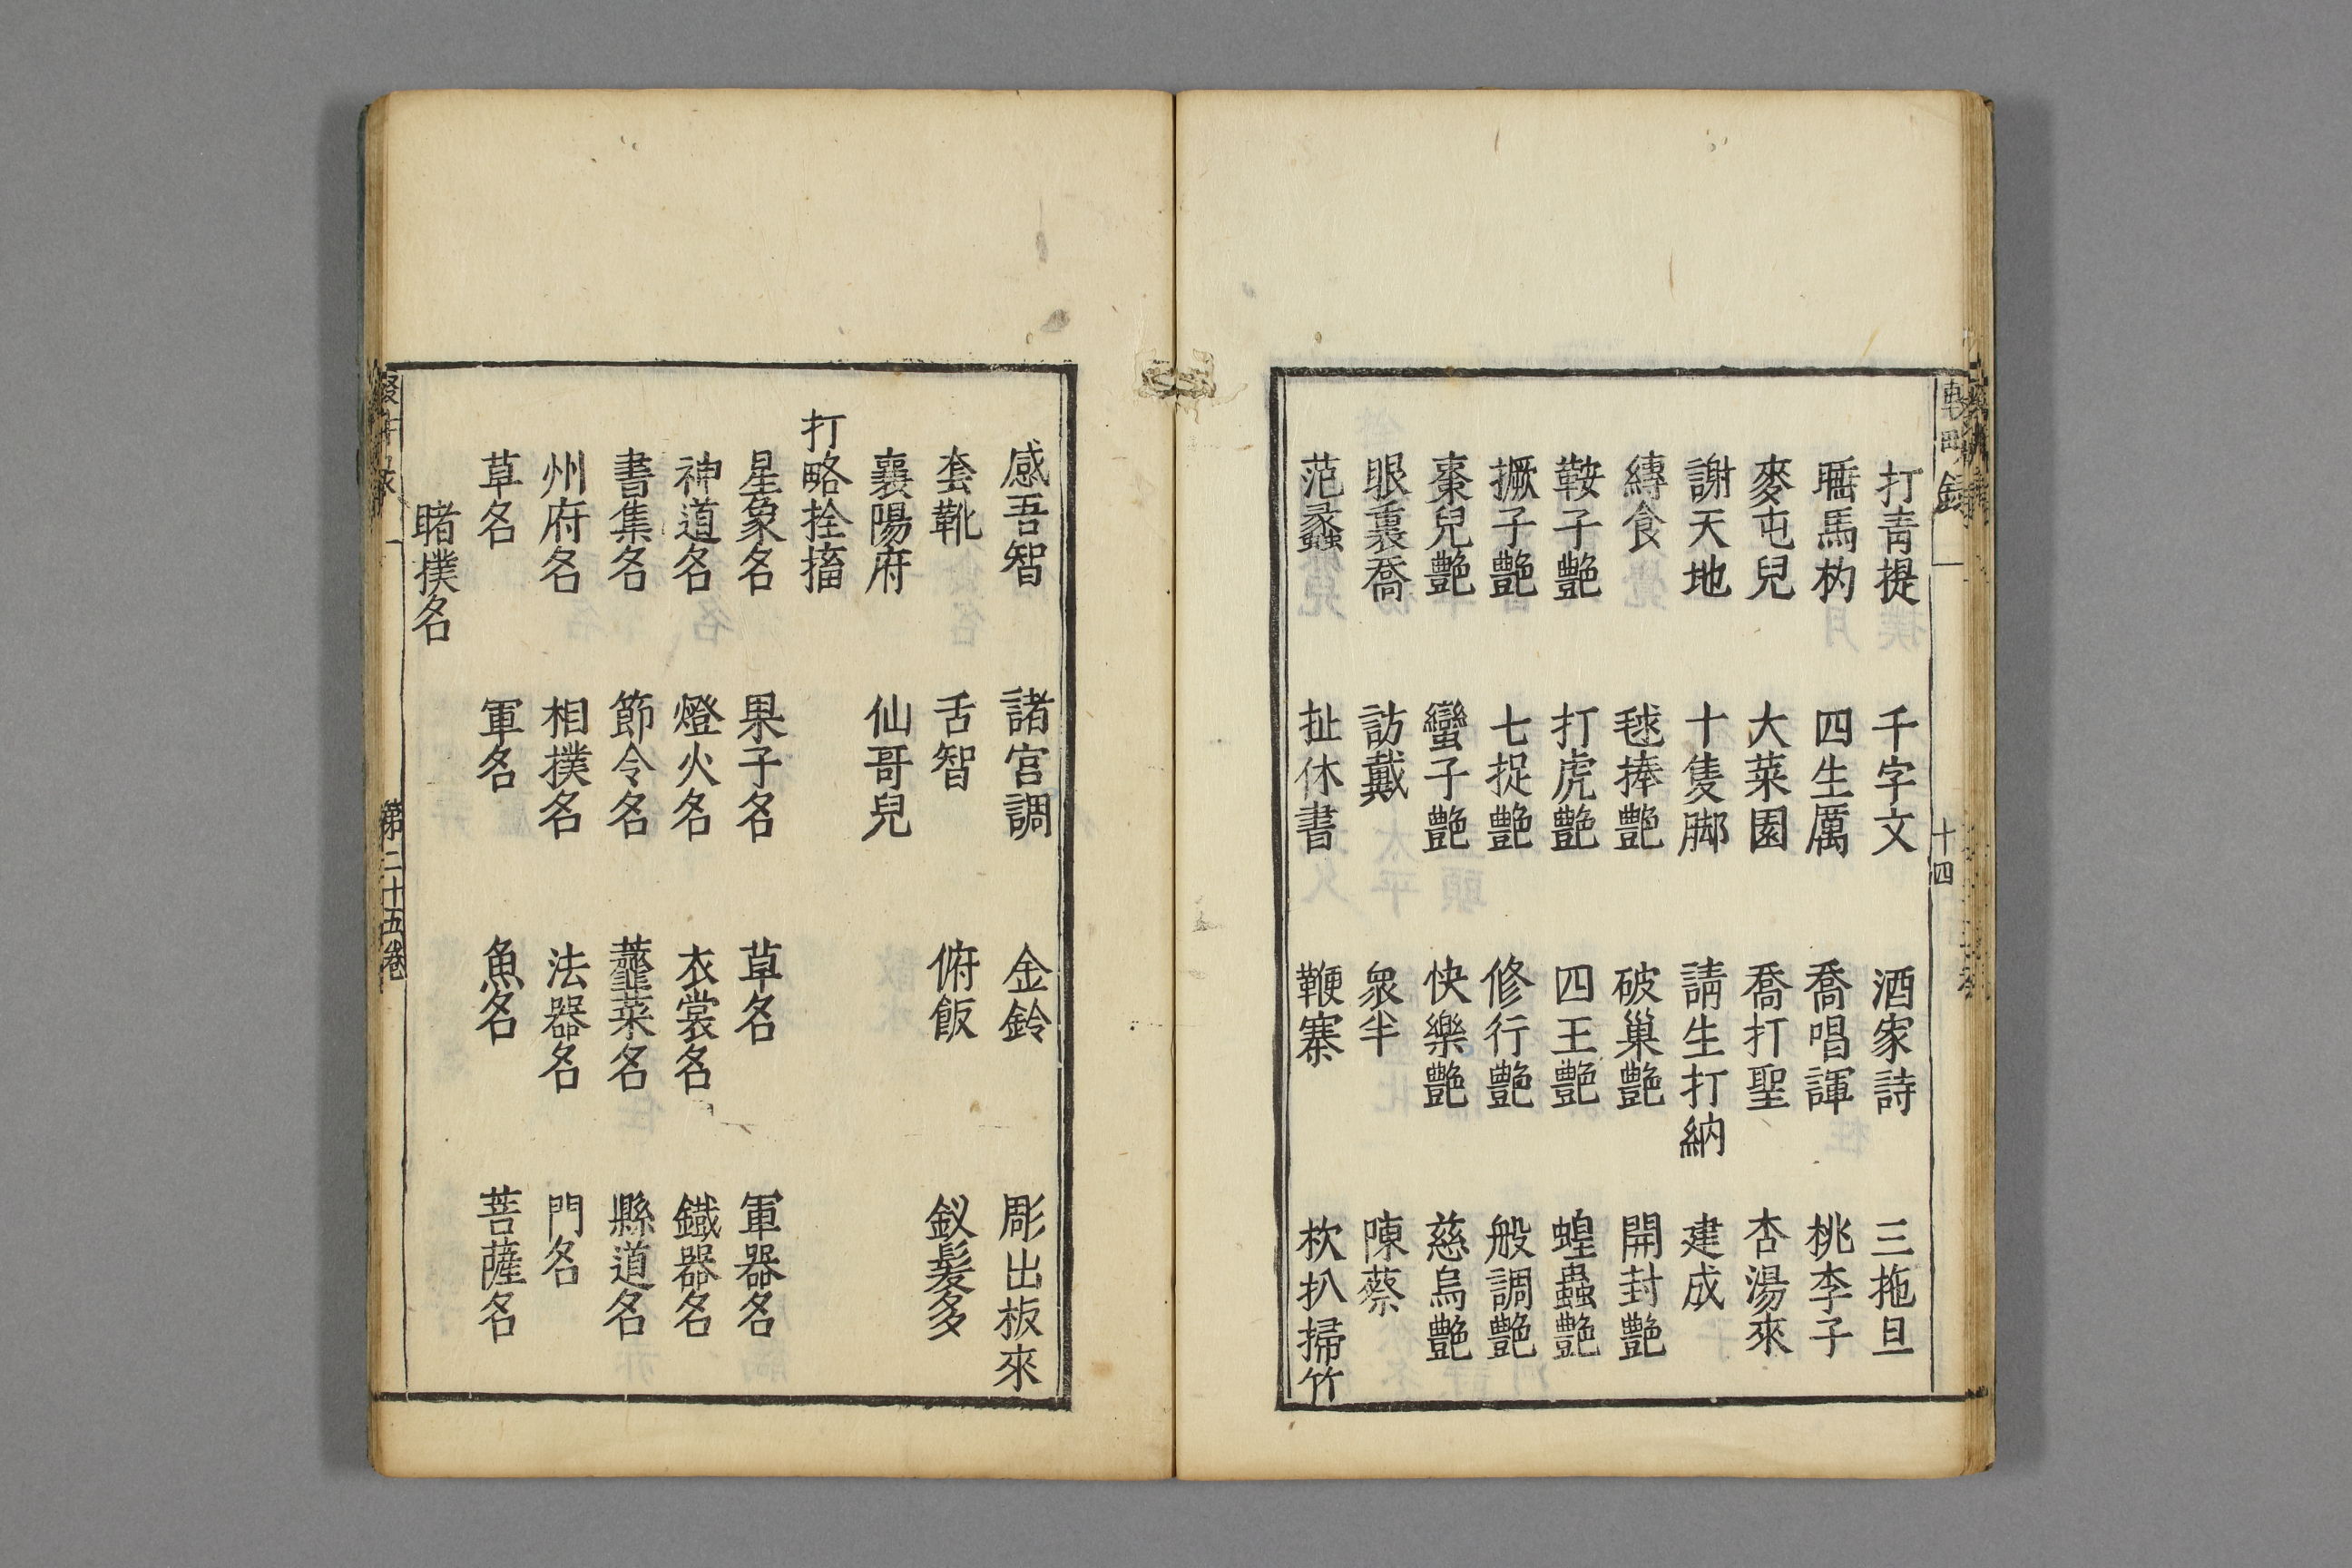 打青提　千字文　酒家詩　三拖旦
睡馬杓　四生厲　喬唱諢　桃李子
麥屯兒　大菜園　喬打聖　杏湯來
謝天地　十隻脚　請生打納　建成
縳食　毬捧艶　破巢艶　開封艶
鞍子艶　打虎艶　四王艶　蝗蟲艶
撅子艶　七捉艶　修行艶　般調艶
棗兒艶　蠻子艶　快樂艶　慈烏艶
眼裏喬　訪戴　衆半　陳蔡
范蠡　扯休書　鞭寨　杴扒掃竹
十四
感吾智　諸宮調　金鈴　彫出板來
套靴　舌智　俯飯　釵髮多
襄陽府　仙哥兒
打略拴搐
星象名　果子名　草名　軍器名
神道名　燈火名　衣裳名　鐵器名
書集名　節令名　虀菜名　縣道名
州府名　相撲名　法器名　門名
草名　軍名　魚名　菩薩名
睹撲名
第二十五卷